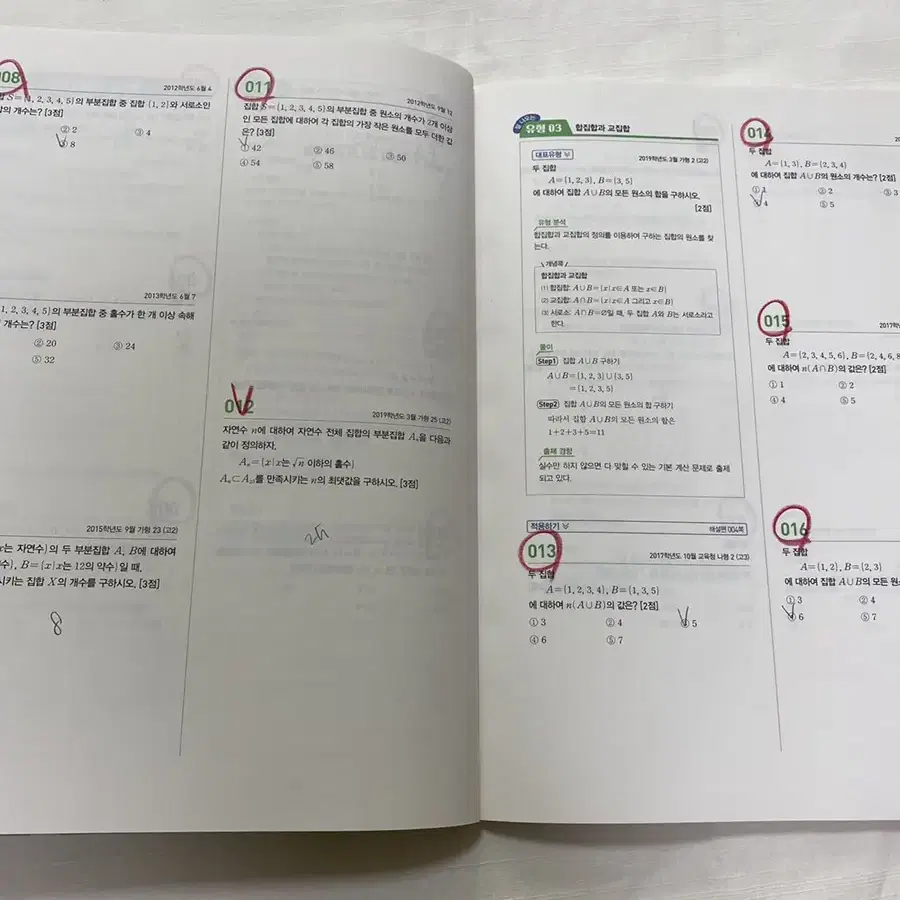 008
2012학년도 6월 4
S={1, 2, 3, 4, 5}의 부분집합 중 집합 {1, 2}와 서로소인
개수는? [3점]
② 2
③ 4
8
2013학년도 6월 7
1, 2, 3, 4, 5}의 부분집합 중 홀수가 한 개 이상 속해
개수는? [3점]
② 20
③ 24
⑤ 32
2015학년도 9월 가형 23 (고2)
x는 자연수}의 두 부분집합 A, B에 대하여
수}, B={x|x는 12의 약수}일 때,
시키는 집합 X의 개수를 구하시오. [3점]
8
011
2012학년도 9월 12
집합 S={1, 2, 3, 4, 5}의 부분집합 중 원소의 개수가 2개 이상
인 모든 집합에 대하여 각 집합의 가장 작은 원소를 모두 더한 값
은? [3점]
① 42
② 46
③ 50
④ 54
⑤ 58
012
2019학년도 3월 가형 25 (고2)
자연수 n에 대하여 자연수 전체 집합의 부분집합 Aₙ을 다음과
같이 정의하자.
Aₙ={x|x는 √n 이하의 홀수}
Aₙ⊂A₂₅를 만족시키는 n의 최댓값을 구하시오. [3점]
유형 03 합집합과 교집합
대표유형
2019학년도 3월 가형 2 (고2)
두 집합
A={1, 2, 3}, B={3, 5}
에 대하여 집합 A∪B의 모든 원소의 합을 구하시오.
[2점]
유형 분석
합집합과 교집합의 정의를 이용하여 구하는 집합의 원소를 찾
는다.
개념쏙
합집합과 교집합
(1) 합집합: A∪B={x|x∈A 또는 x∈B}
(2) 교집합: A∩B={x|x∈A 그리고 x∈B}
(3) 서로소: A∩B=∅일 때, 두 집합 A와 B는 서로소라고
한다.
풀이
Step1 집합 A∪B 구하기
A∪B={1, 2, 3}∪{3, 5}
={1, 2, 3, 5}
Step2 집합 A∪B의 모든 원소의 합 구하기
따라서 집합 A∪B의 모든 원소의 합은
1+2+3+5=11
출제 경향
실수만 하지 않으면 다 맞힐 수 있는 기본 계산 문제로 출제
되고 있다.
적용하기
해설편 004쪽
013
2017학년도 10월 교육청 나형 2 (고3)
두 집합
A={1, 2, 3, 4}, B={1, 3, 5}
에 대하여 n(A∪B)의 값은? [2점]
① 3
② 4
③ 5
④ 6
⑤ 7
014
두 집합
A={1, 3}, B={2, 3, 4}
에 대하여 집합 A∪B의 원소의 개수는? [2점]
① 1
② 2
③ 3
④ 4
⑤ 5
015
2017
두 집합
A={2, 3, 4, 5, 6}, B={2, 4, 6, 8
에 대하여 n(A∩B)의 값은? [2점]
① 1
② 2
④ 4
⑤ 5
016
두 집합
A={1, 2}, B={2, 3}
에 대하여 집합 A∪B의 모든 원소
① 3
② 4
④ 6
⑤ 7